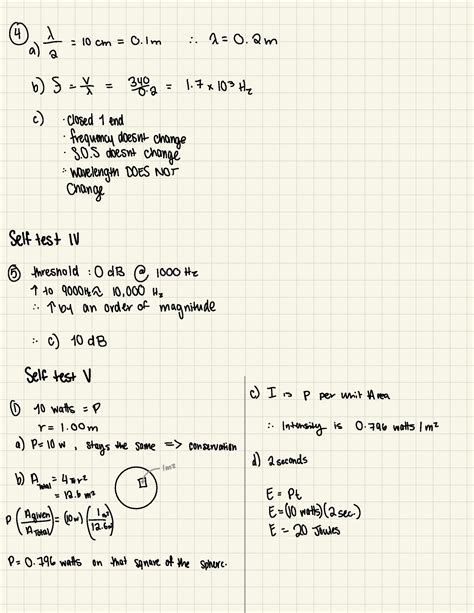 ④ a) λ/2 = 10 cm = 0.1m ∴ λ = 0.2m
b) f = v/λ = 340/0.2 = 1.7 × 10³ Hz
c) · closed 1 end
· frequency doesnt change
· S.O.S doesnt change
∴ wavelength DOES NOT
Change
Self test IV
⑤ threshold : 0 dB @ 1000 Hz
↑ to 9000Hz ≈ 10,000 Hz
∴ ↑ by an order of magnitude
∴ c) 10 dB
Self test V
① 10 watts = P
r = 1.00m
a) P = 10 w , stays the same => conservation
b) A Total = 4πr²
= 12.6 m²
1m²
P (A given / A Total) = (10w) (1 m² / 12.6m²)
P = 0.796 watts on that square of the sphere.
c) I is P per unit Area
∴ Intensity is 0.796 watts / m²
d) 2 seconds
E = Pt
E = (10 watts)(2 sec.)
E = 20 Joules